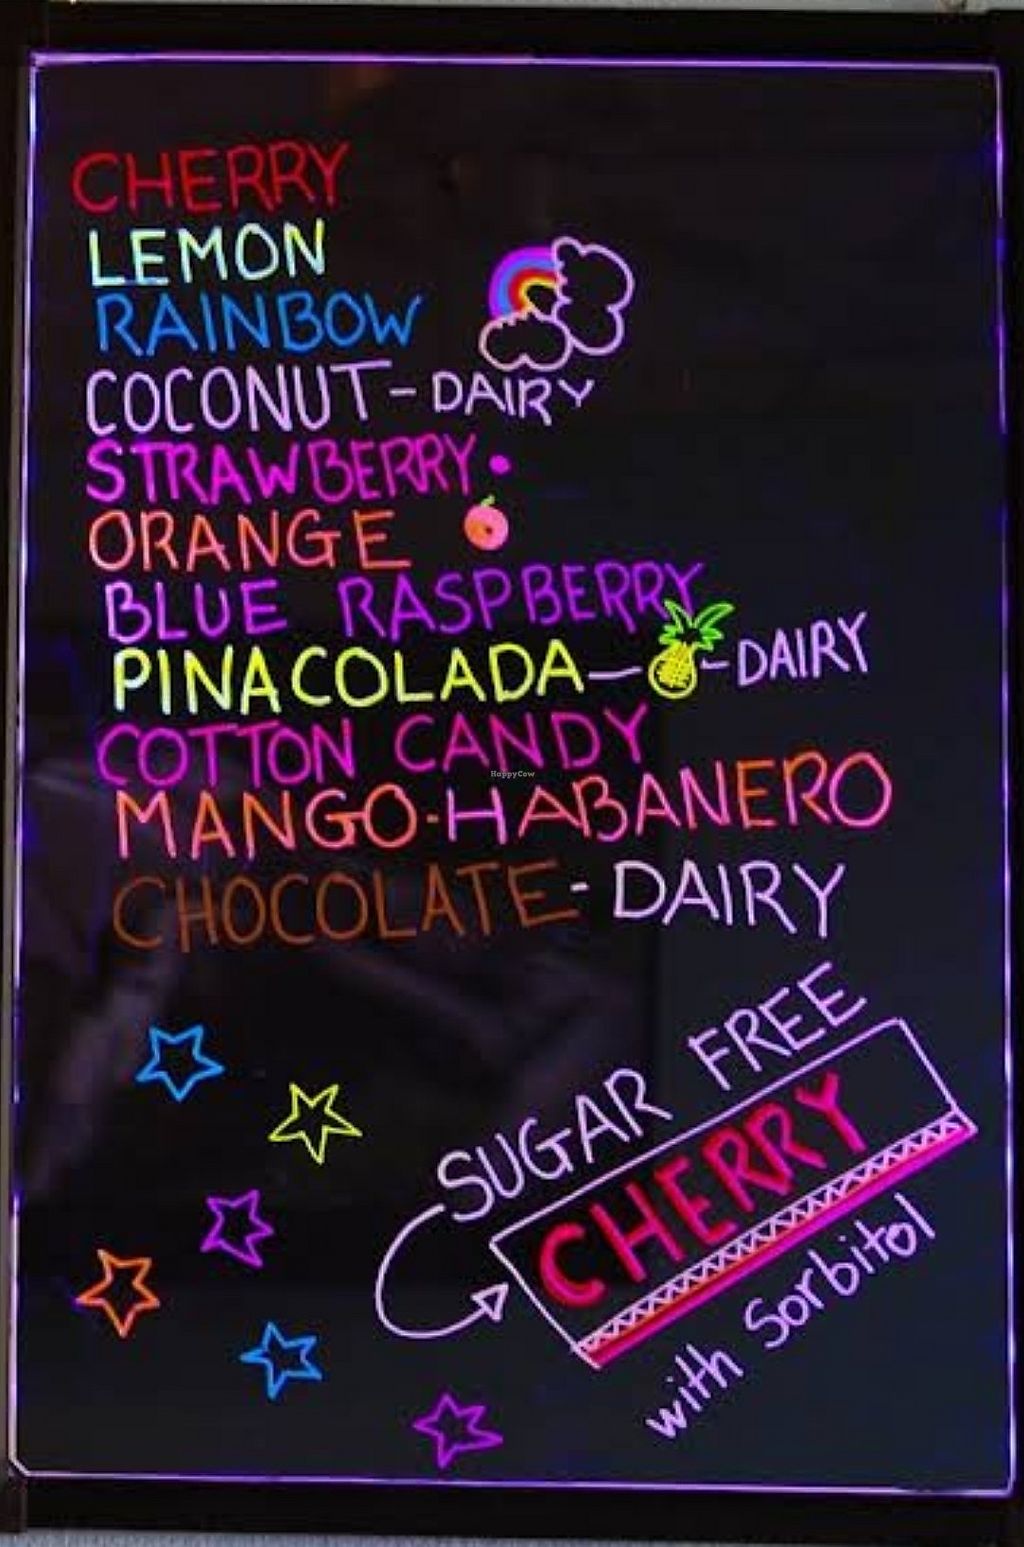 CHERRY
LEMON
RAINBOW
COCONUT-DAIRY
STRAWBERRY
ORANGE
BLUE RASPBERRY
PINACOLADA--DAIRY
COTTON CANDY
HappyCow
MANGO-HABANERO
CHOCOLATE-DAIRY
SUGAR FREE
CHERRY
with Sorbitol